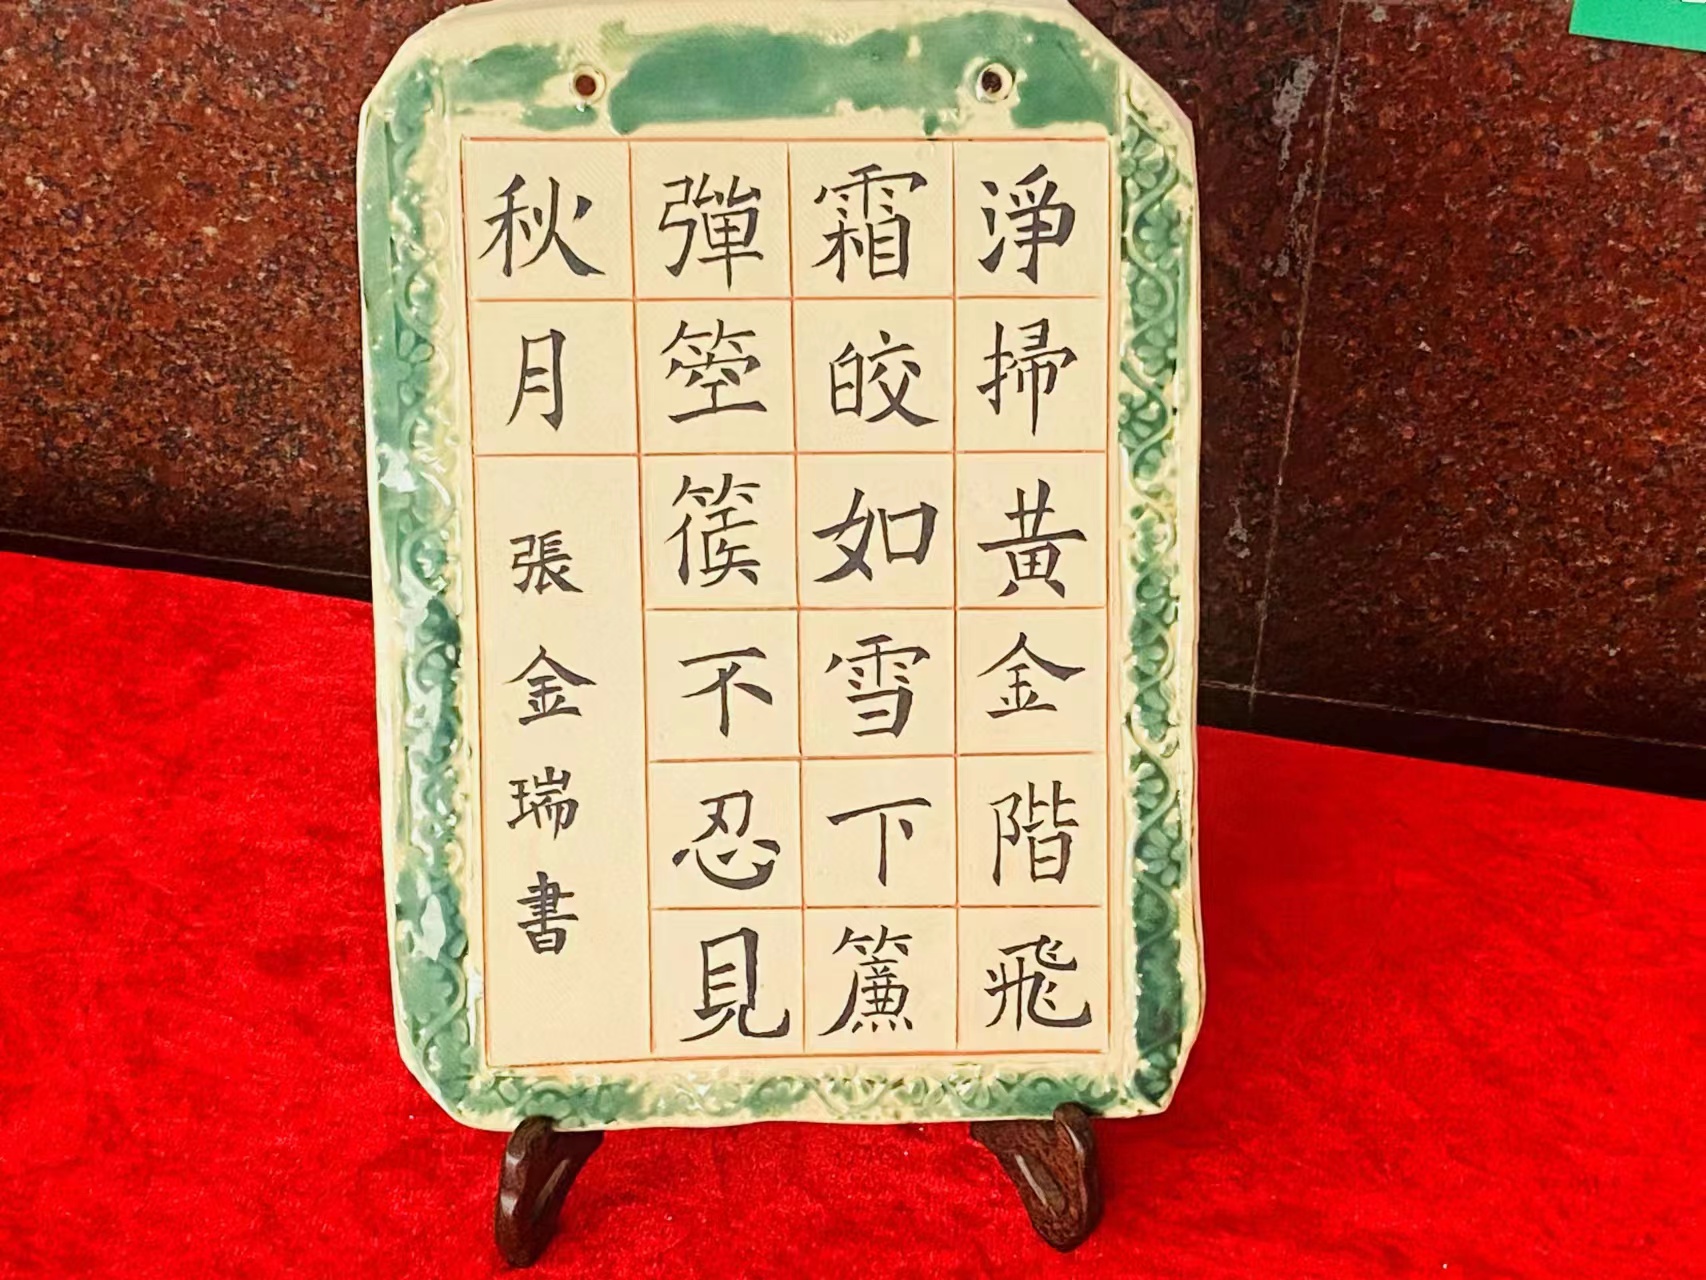 淨掃黃金階飛
霜皎如雪下簾
彈箜篌不忍見
秋月
張金瑞書